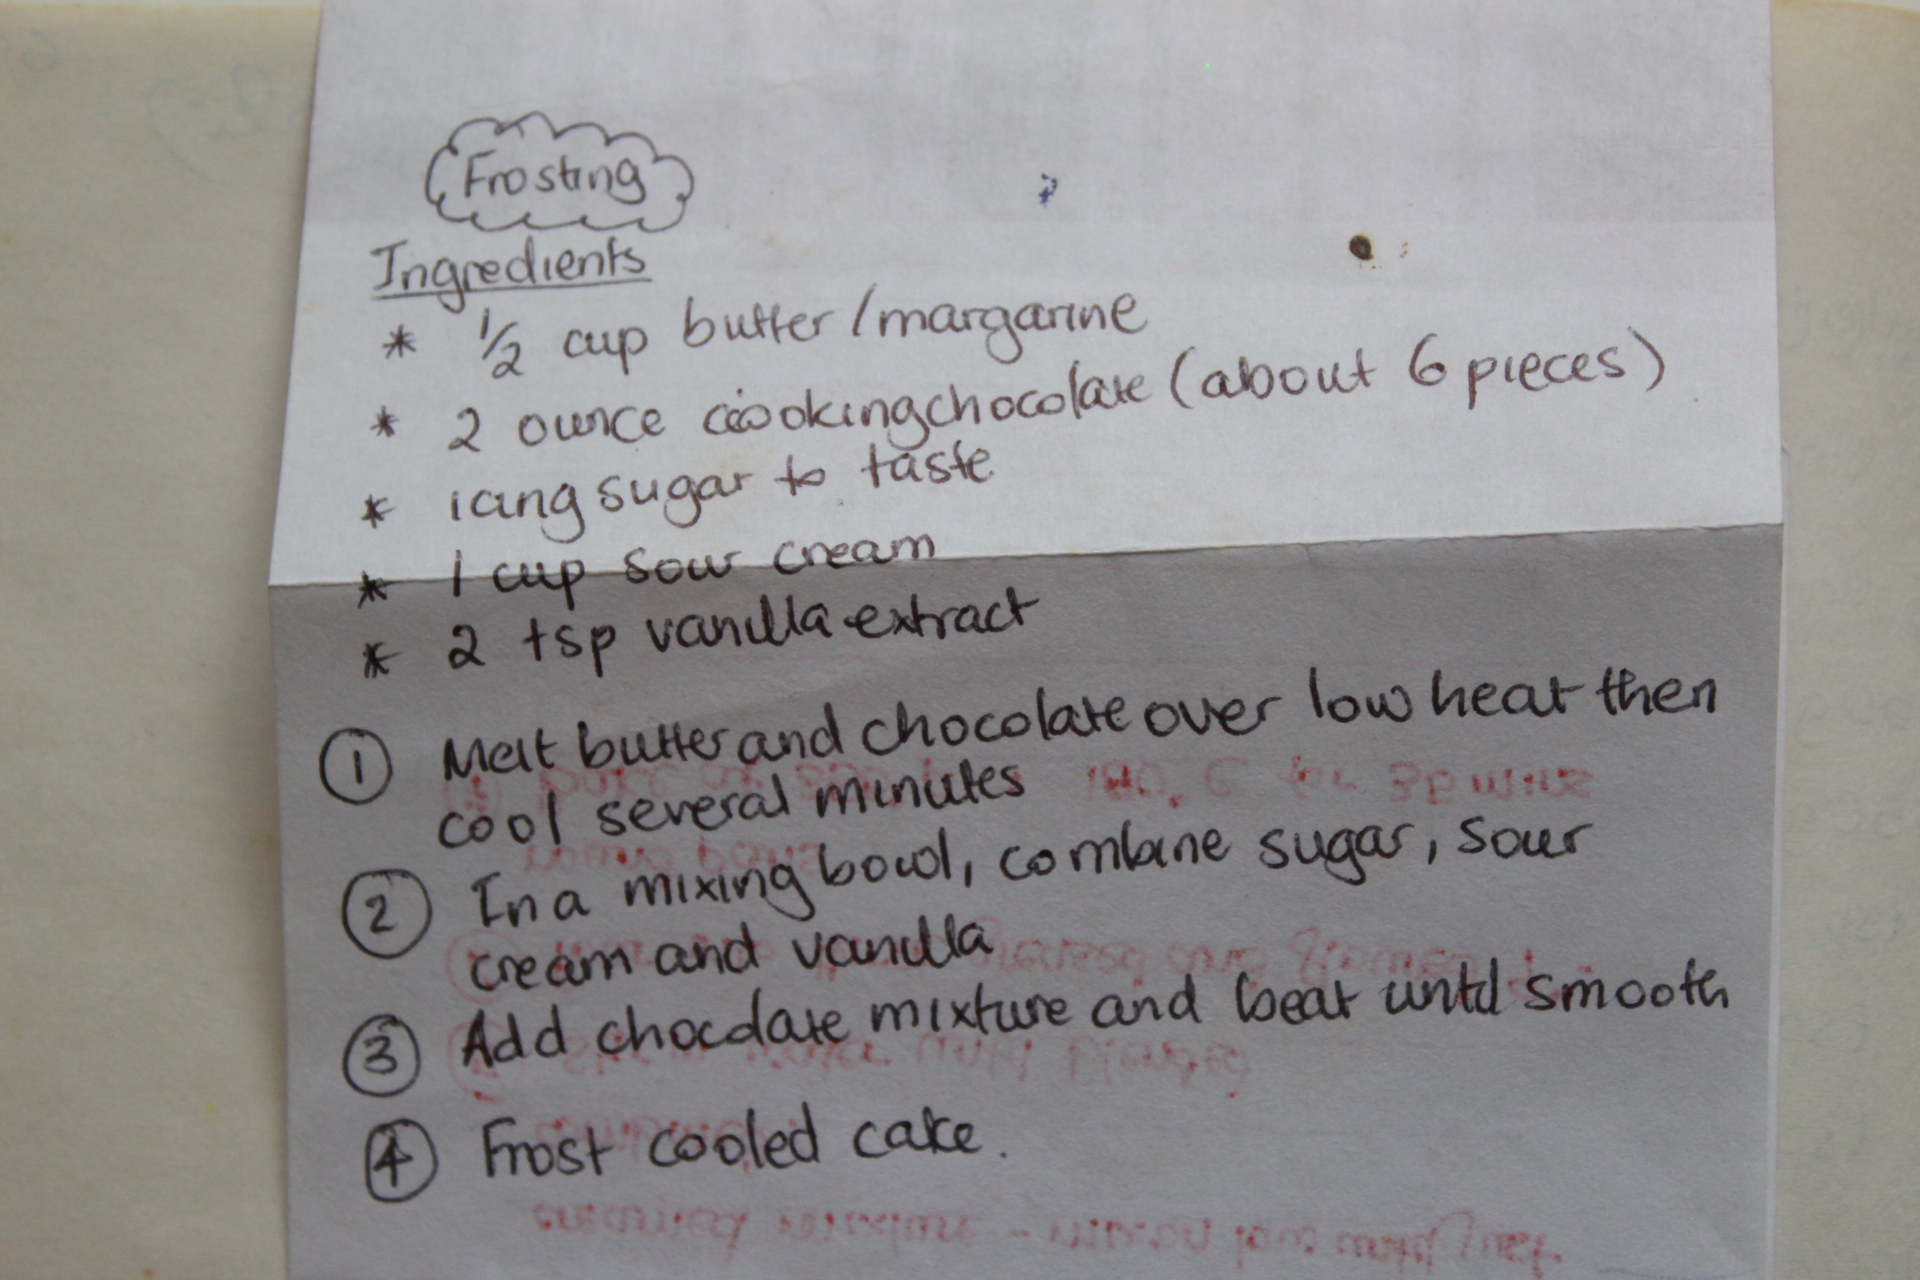 Frosting
Ingredients
* 1/2 cup butter/margarine
* 2 ounce cookingchocolate (about 6 pieces)
* icing sugar to taste
* 1 cup sour cream
* 2 tsp vanilla extract
① Melt butter and chocolate over low heat then
cool several minutes
② In a mixing bowl, combine sugar, sour
cream and vanilla
③ Add chocolate mixture and beat until smooth
④ Frost cooled cake.